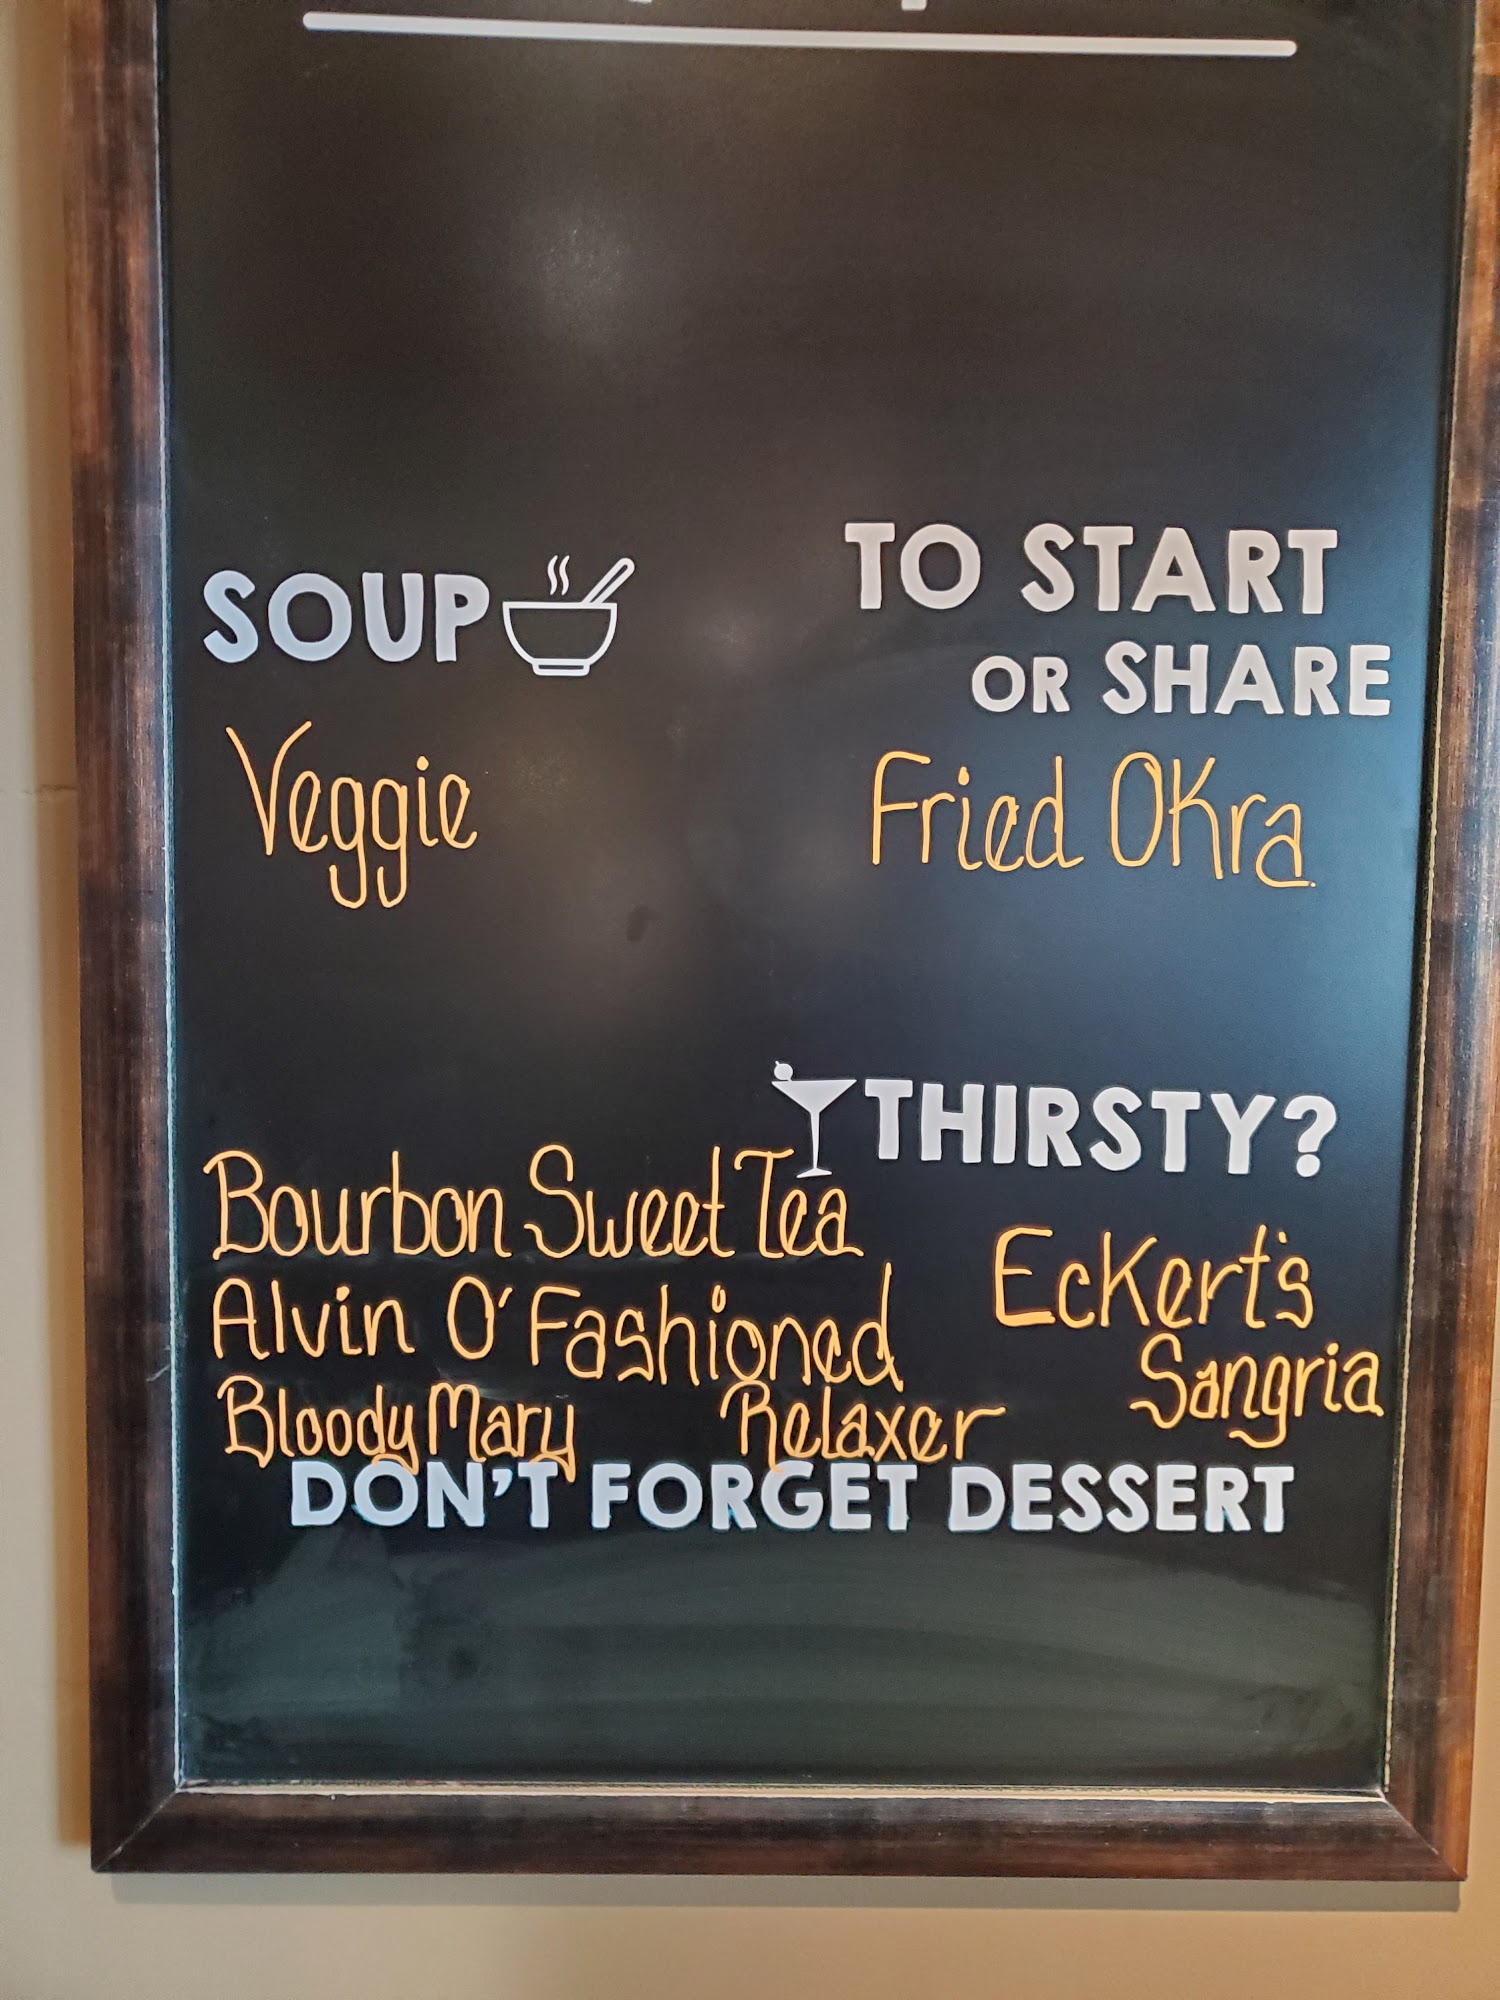 SOUP
Veggie
TO START
OR SHARE
Fried OKra
THIRSTY?
Bourbon Sweet Tea
Alvin O' Fashioned
Bloody Mary Relaxer
EcKert's
Sangria
DON'T FORGET DESSERT